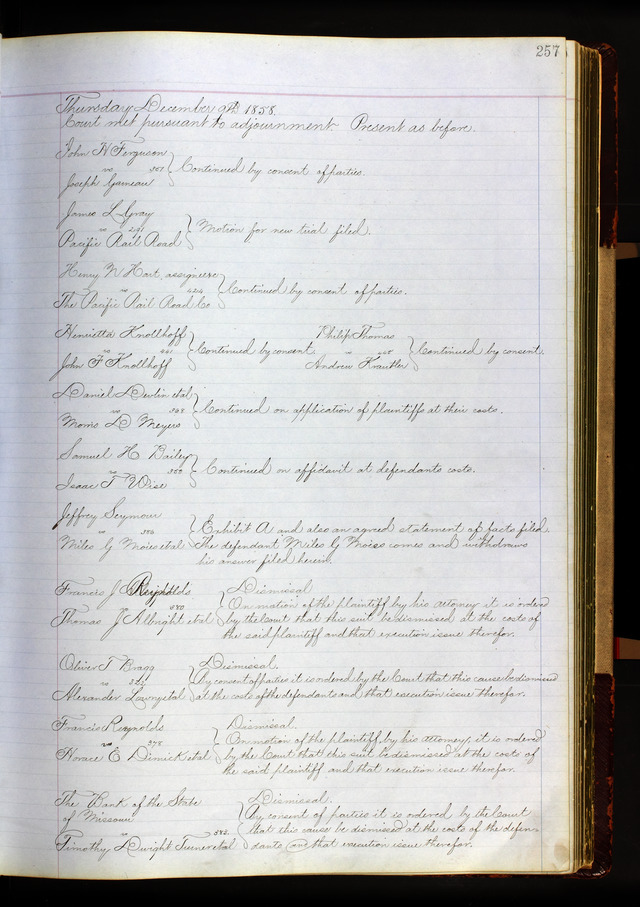 257
Thursday December 9th 1858.
Court met pursuant to adjournment. Present as before.
John H Ferguson
vs 367 Continued by consent of parties.
Joseph Garneau
James L Gray
vs 241 Motion for new trial filed.
Pacific Rail Road
Henry N Hart, assignee &c
vs 424 Continued by consent of parties.
The Pacific Rail Road Co
Henrietta Knollhoff
vs 441 Continued by consent.
John F Knollhoff
Philip Thomas
vs 448 Continued by consent.
Andrew Krautler
Daniel Devlin et al
vs 368 Continued on application of plaintiffs at their costs.
Morris D Meyers
Samuel H Bailey
vs 366 Continued on affidavit at defendants costs.
Isaac T Wise
Jeffrey Seymour
vs 386 Exhibit A and also an agreed statement of facts filed.
Miles G Moies et al The defendant Miles G Moies comes and withdraws
his answer filed herein.
Francis J Reynolds Dismissal
vs 380 On motion of the plaintiff by his attorney it is ordered
Thomas J Albright et al by the Court that this suit be dismissed at the costs of
the said plaintiff and that execution issue therefor.
Oliver T Bragg Dismissal.
vs By consent of parties it is ordered by the Court that this cause be dismissed
Alexander Lowry et al at the costs of the defendants and that execution issue therefor.
Francis Reynolds Dismissal.
vs 378 On motion of the plaintiff, by his attorney, it is ordered
Horace E Dimick et al by the Court that this suit be dismissed at the costs of
the said plaintiff and that execution issue therefor.
The Bank of the State Dismissal.
of Missouri By consent of parties it is ordered by the Court
vs 382. that this cause be dismissed at the costs of the defen-
Timothy Dwight Turner et al dants and that execution issue therefor.